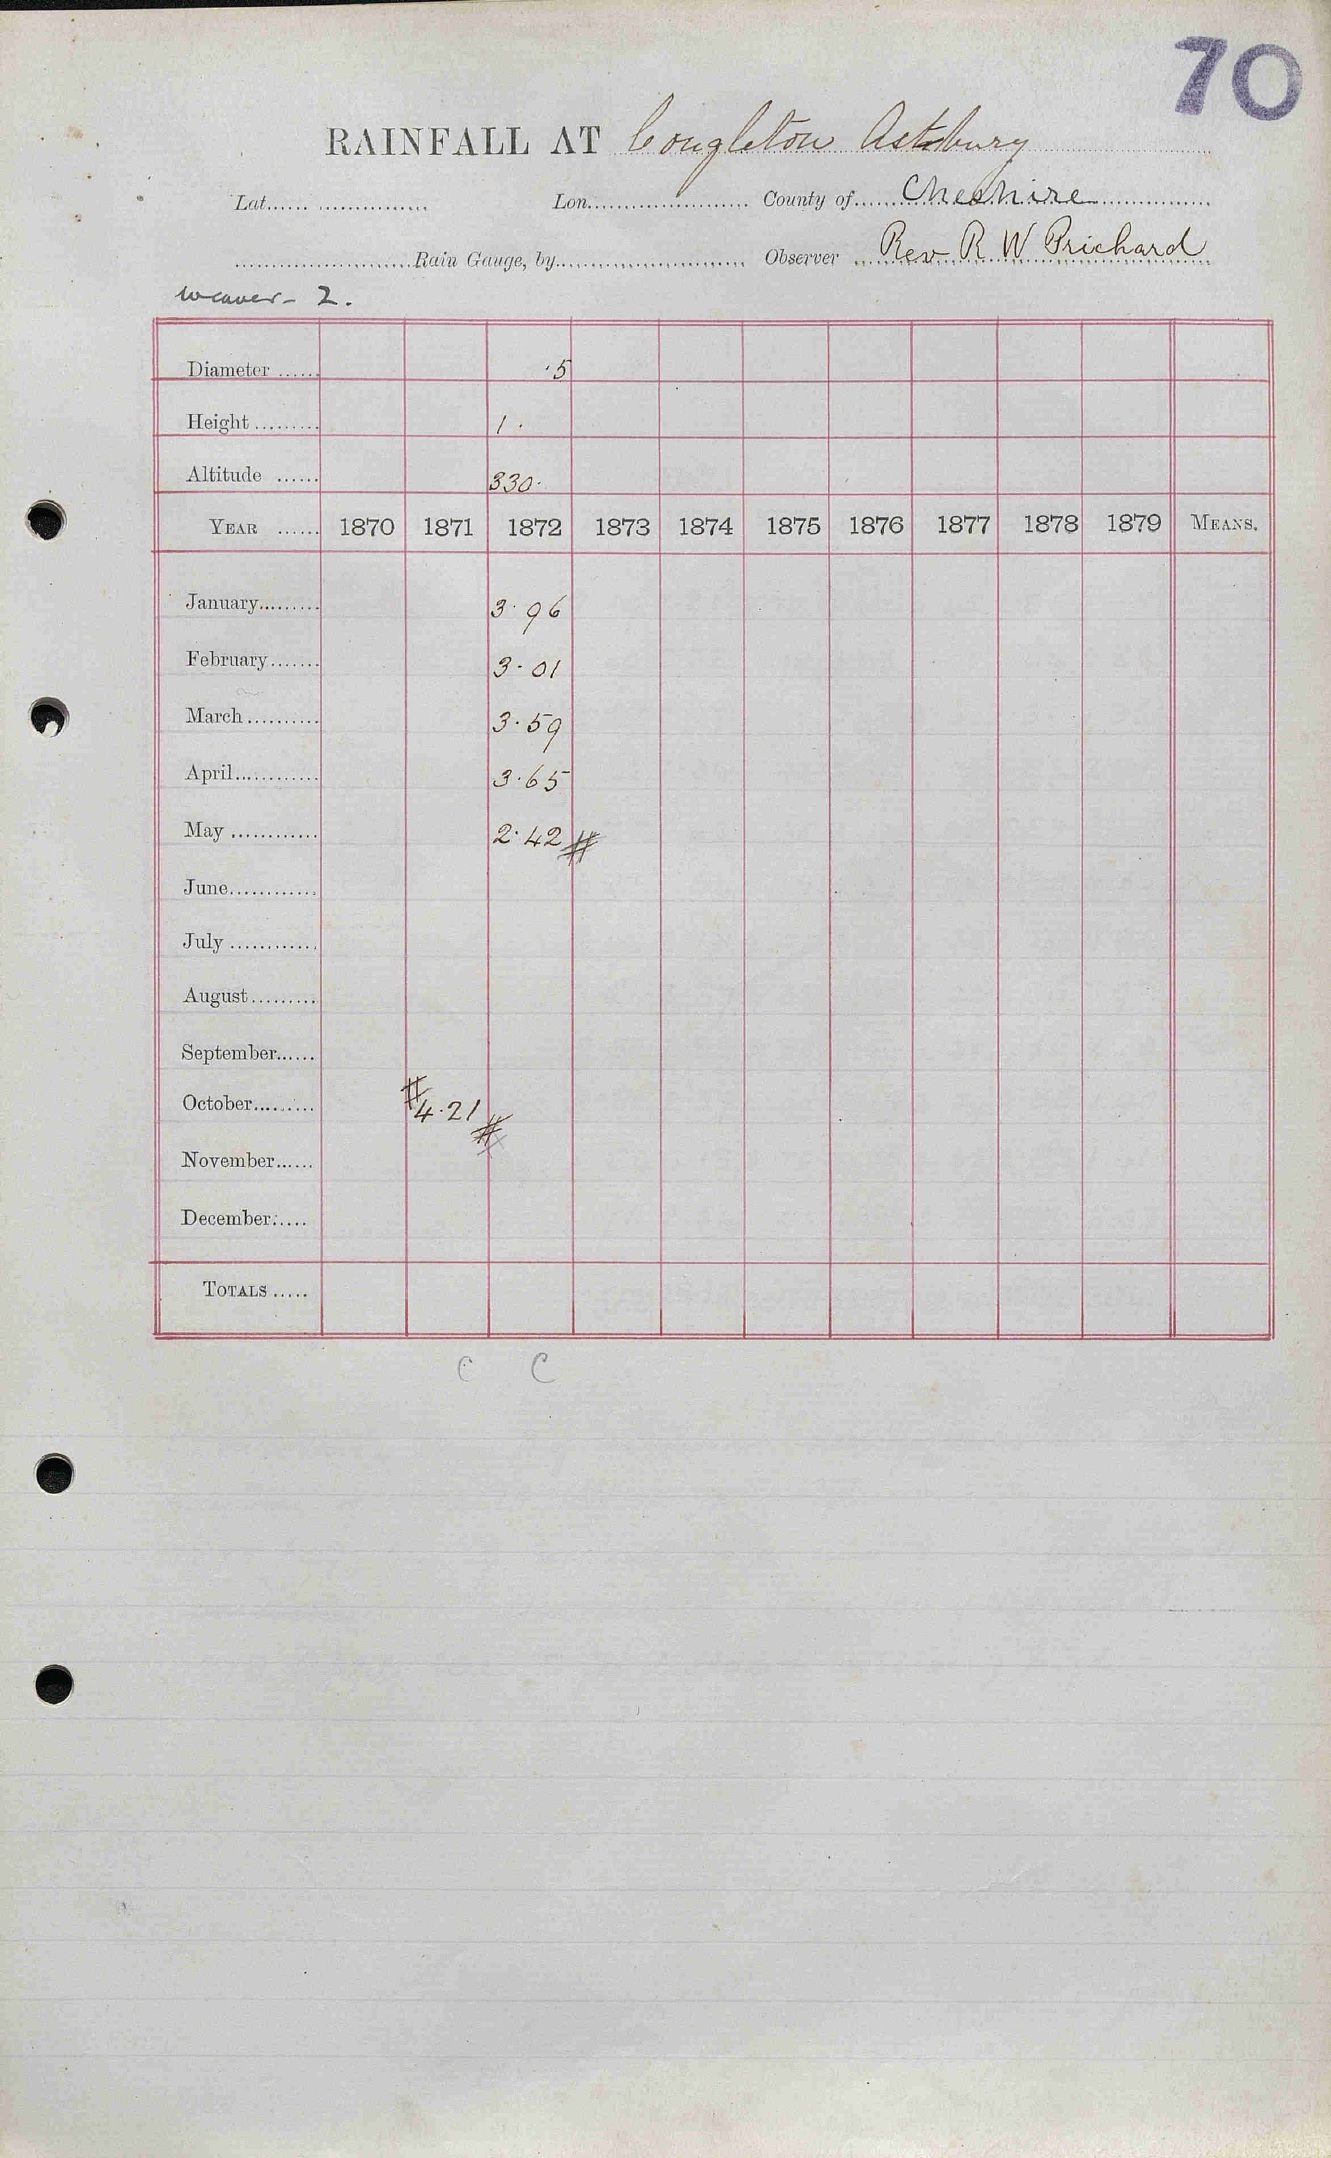 70
RAINFALL AT Congleton Astbury
Lat. Lon. County of Cheshire
Rain Gauge, by Observer Rev R W Prichard
Weaver - 2.
Diameter ·5
Height 1 ·
Altitude 330·
YEAR 1870 1871 1872 1873 1874 1875 1876 1877 1878 1879 MEANS.
January 3·96
February 3·01
March 3·59
April 3·65
May 2·42 #
June
July
August
September
October # 4·21 # x
November
December
TOTALS
C C